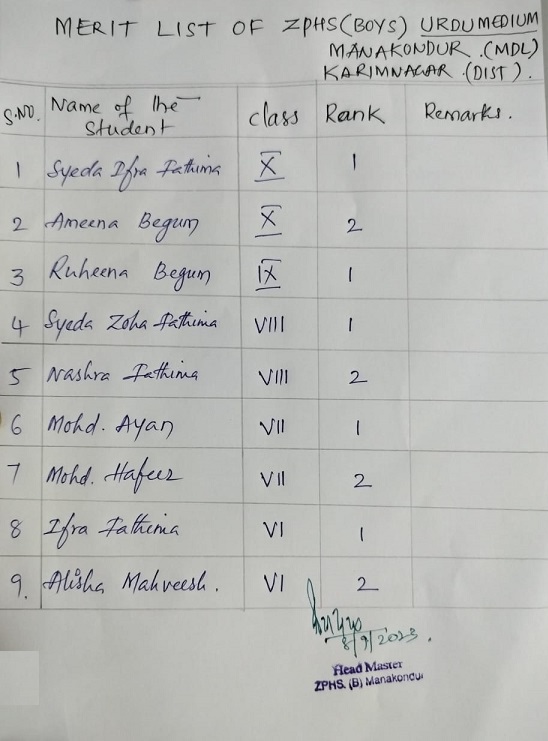 MERIT LIST OF ZPHS(BOYS) URDU MEDIUM
MANAKONDUR.(MDL)
KARIMNAGAR.(DIST).
S.NO. Name of the Student class Rank Remarks.
1 Syeda Ifra Fathima X 1
2 Ameena Begum X 2
3 Ruheena Begum IX 1
4 Syeda Zoha Fathima VIII 1
5 Nashra Fathima VIII 2
6 Mohd. Ayan VII 1
7 Mohd. Hafeez VII 2
8 Ifra Fathima VI 1
9. Alisha Mahveesh. VI 2
8/9/2023.
Head Master
ZPHS. (B) Manakondur